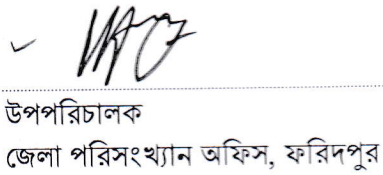 উপপরিচালক
জেলা পরিসংখ্যান অফিস, ফরিদপুর